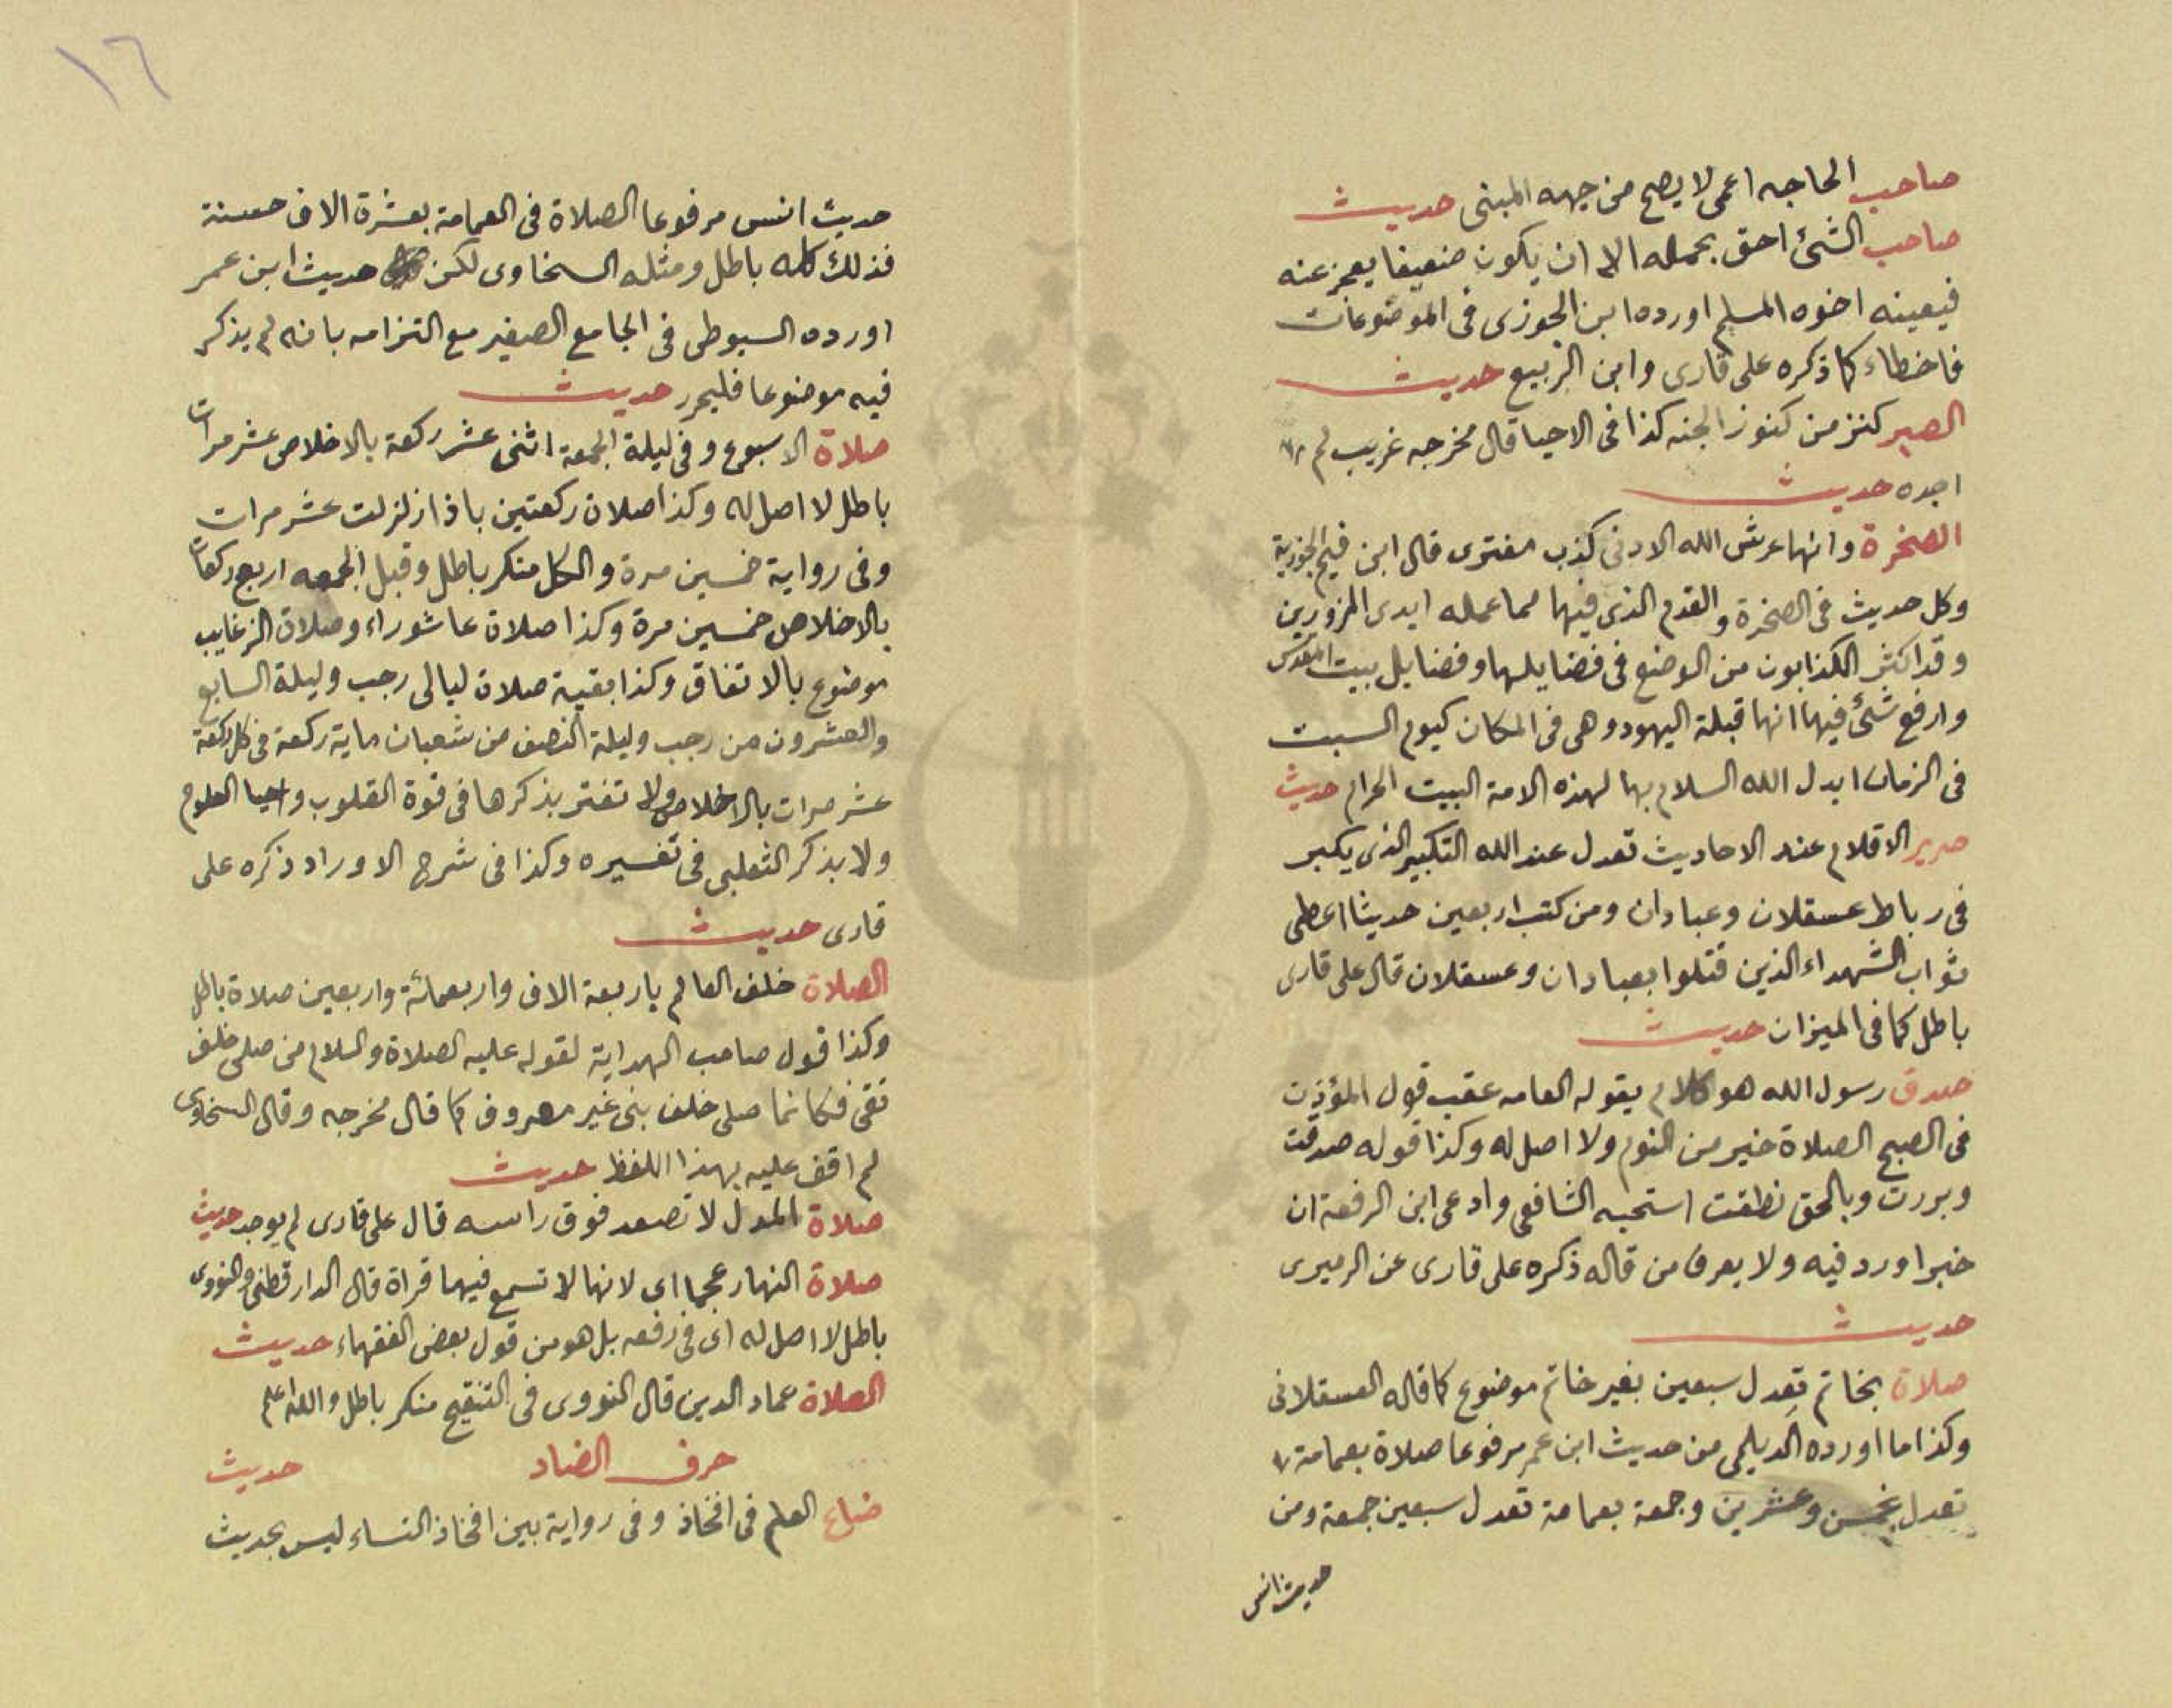 صاحب الحاجه اعمى لا يصح من جهه المبنى حديث
صاحب الشئ احق بحمله الا ان يكون ضعيفا يعجز عنه
فيعينه اخوه المسلم اورده ابن الجوزى فى الموضوعات
فاخطاء كما ذكره على قارى وابن الربيع حديث
الصبر كنز من كنوز الجنه كذا فى الاحيا قال مخرجه غريب لم
اجده حديث
الصخرة وانها عرش الله الادنى كذب مفترى قال ابن قيم الجوزية
وكل حديث فى الصخرة والقدم الذى فيها مما عمله ايدى المزورين
وقد اكثر الكذابون من الوضع فى فضايلها وفضايل بيت المقدس
وارفع شئ فيها انها قبلة اليهود وهى فى المكان كيوم السبت
فى الزمان ابدل الله السلام بها لهذه الامة البيت الحرام حديث
صرير الاقلام عند الاحاديث تعدل عند الله التكبير الذى يكبر
فى رباط عسقلان وعبادان ومن كتب اربعين حديثا اعطى
ثواب الشهداء الذين قتلوا بعبادان وعسقلان قال على قارى
باطل كما فى الميزان حديث
صدق رسول الله هو كلام يقوله العامه عقب قول المؤذن
فى الصبح الصلاة خير من النوم ولا اصل له وكذا قوله صدقت
وبررت وبالحق نطقت استحبه الشافعى وادعى ابن الرفعة ان
خبرا ورد فيه ولا يعرف من قاله ذكره على قارى عن الرميرى
حديث
صلاة بخاتم تعدل سبعين بغير خاتم موضوع كما قاله العسقلانى
وكذا ما اورده الديلمى من حديث ابن عمر مرفوعا صلاة بعمامة
تعدل بخمس وعشرين وجمعة بعمامة تعدل سبعين جمعة ومن
حديث انس
١٦
حديث انس مرفوعا الصلاة فى العمامة بعشرة الاف حسنة
فذلك كله باطل ومثله السخاوى لكن حديث ابن عمر
اورده السيوطى فى الجامع الصغير مع التزامه بانه لم يذكر
فيه موضوعا فليحرر حديث
صلاة الاسبوع وفى ليلة الجمعة اثنى عشر ركعة بالاخلاص عشر مرات
باطل لا اصل له وكذا صلاة ركعتين باذا زلزلت عشر مرات
وفى رواية خمسين مرة والكل منكر باطل وقبل الجمعه اربع ركعات
بالاخلاص خمسين مرة وكذا صلاة عاشوراء وصلاة الرغايب
موضوع بالاتفاق وكذا بقية صلاة ليالى رجب وليلة السابع
والعشرون من رجب وليلة النصف من شعبان ماية ركعة فى كل ركعة
عشر مرات بالاخلاص ولا تغتر بذكرها فى قوة القلوب واحيا العلوم
ولا بذكر الثعلبى فى تفسيره وكذا فى شرح الاوراد ذكره على
قارى حديث
الصلاة خلف العالم باربعة الاف واربعمائة واربعين صلاة باطل
وكذا قول صاحب الهداية لقوله عليه الصلاة والسلام من صلى خلف
تقى فكانما صلى خلف بنى غير معروف كما قال مخرجه وقال السخاوى
لم اقف عليه بهذا اللفظ حديث
صلاة المدل لا تصعد فوق راسه قال على قارى لم يوجد حديث
صلاة النهار عجما اى لانها لا تسمع فيها قراة قال الدارقطنى والنووى
باطل لا اصل له اى فى رفعه بل هو من قول بعض الفقهاء حديث
الصلاة عماد الدين قال النووى فى التنقيح منكر باطل والله اعلم
حرف الضاد حديث
ضاع العلم فى افخاذ وفى رواية بين افخاذ النساء ليس بحديث